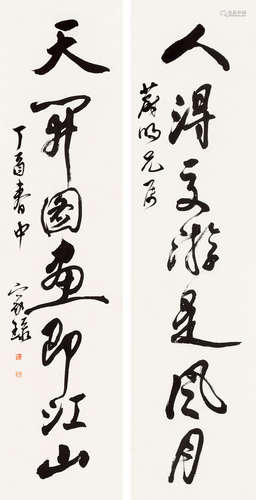 人得交游是風月
兄屬
天開圖畫即江山
丁酉春中